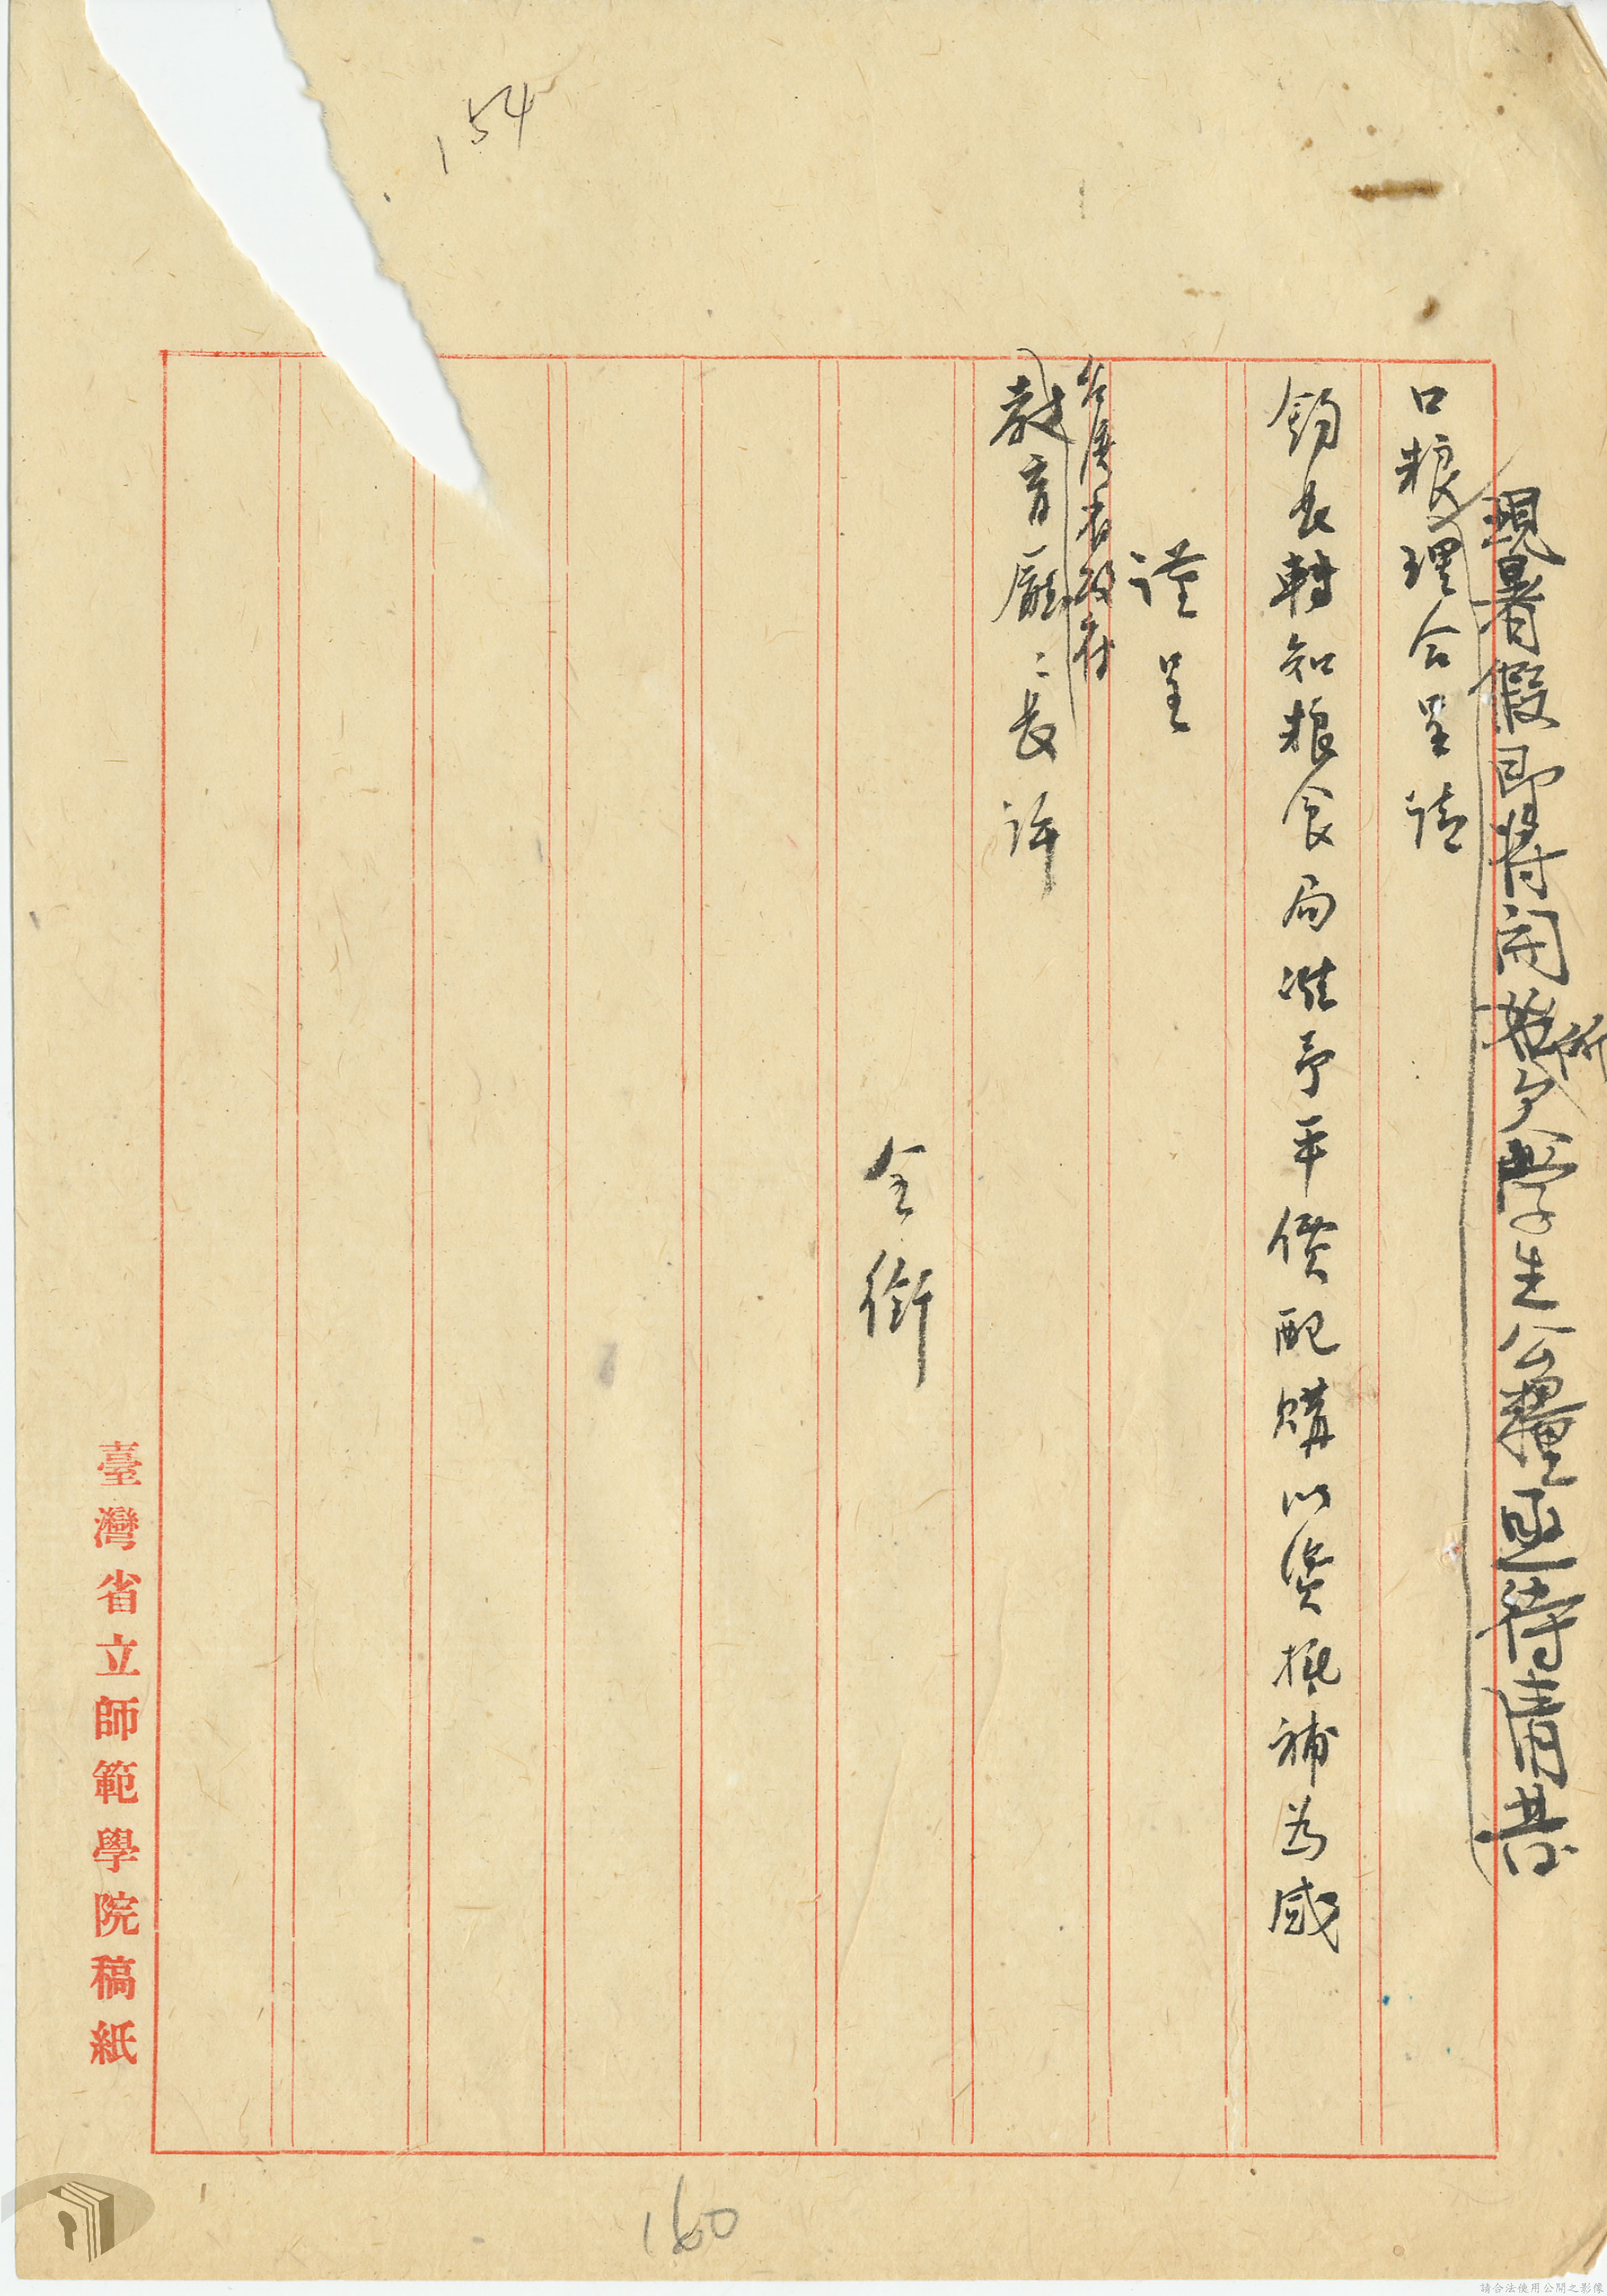 現暑假即將開始所欠學生公糧亟待清発
口粮理合呈請
鈞長轉知粮食局准予平價配購以資抵補為感
謹呈
台湾省政府
教育廳〻長許
全銜
臺灣省立師範學院稿紙
154
160
請合法使用公開之影像